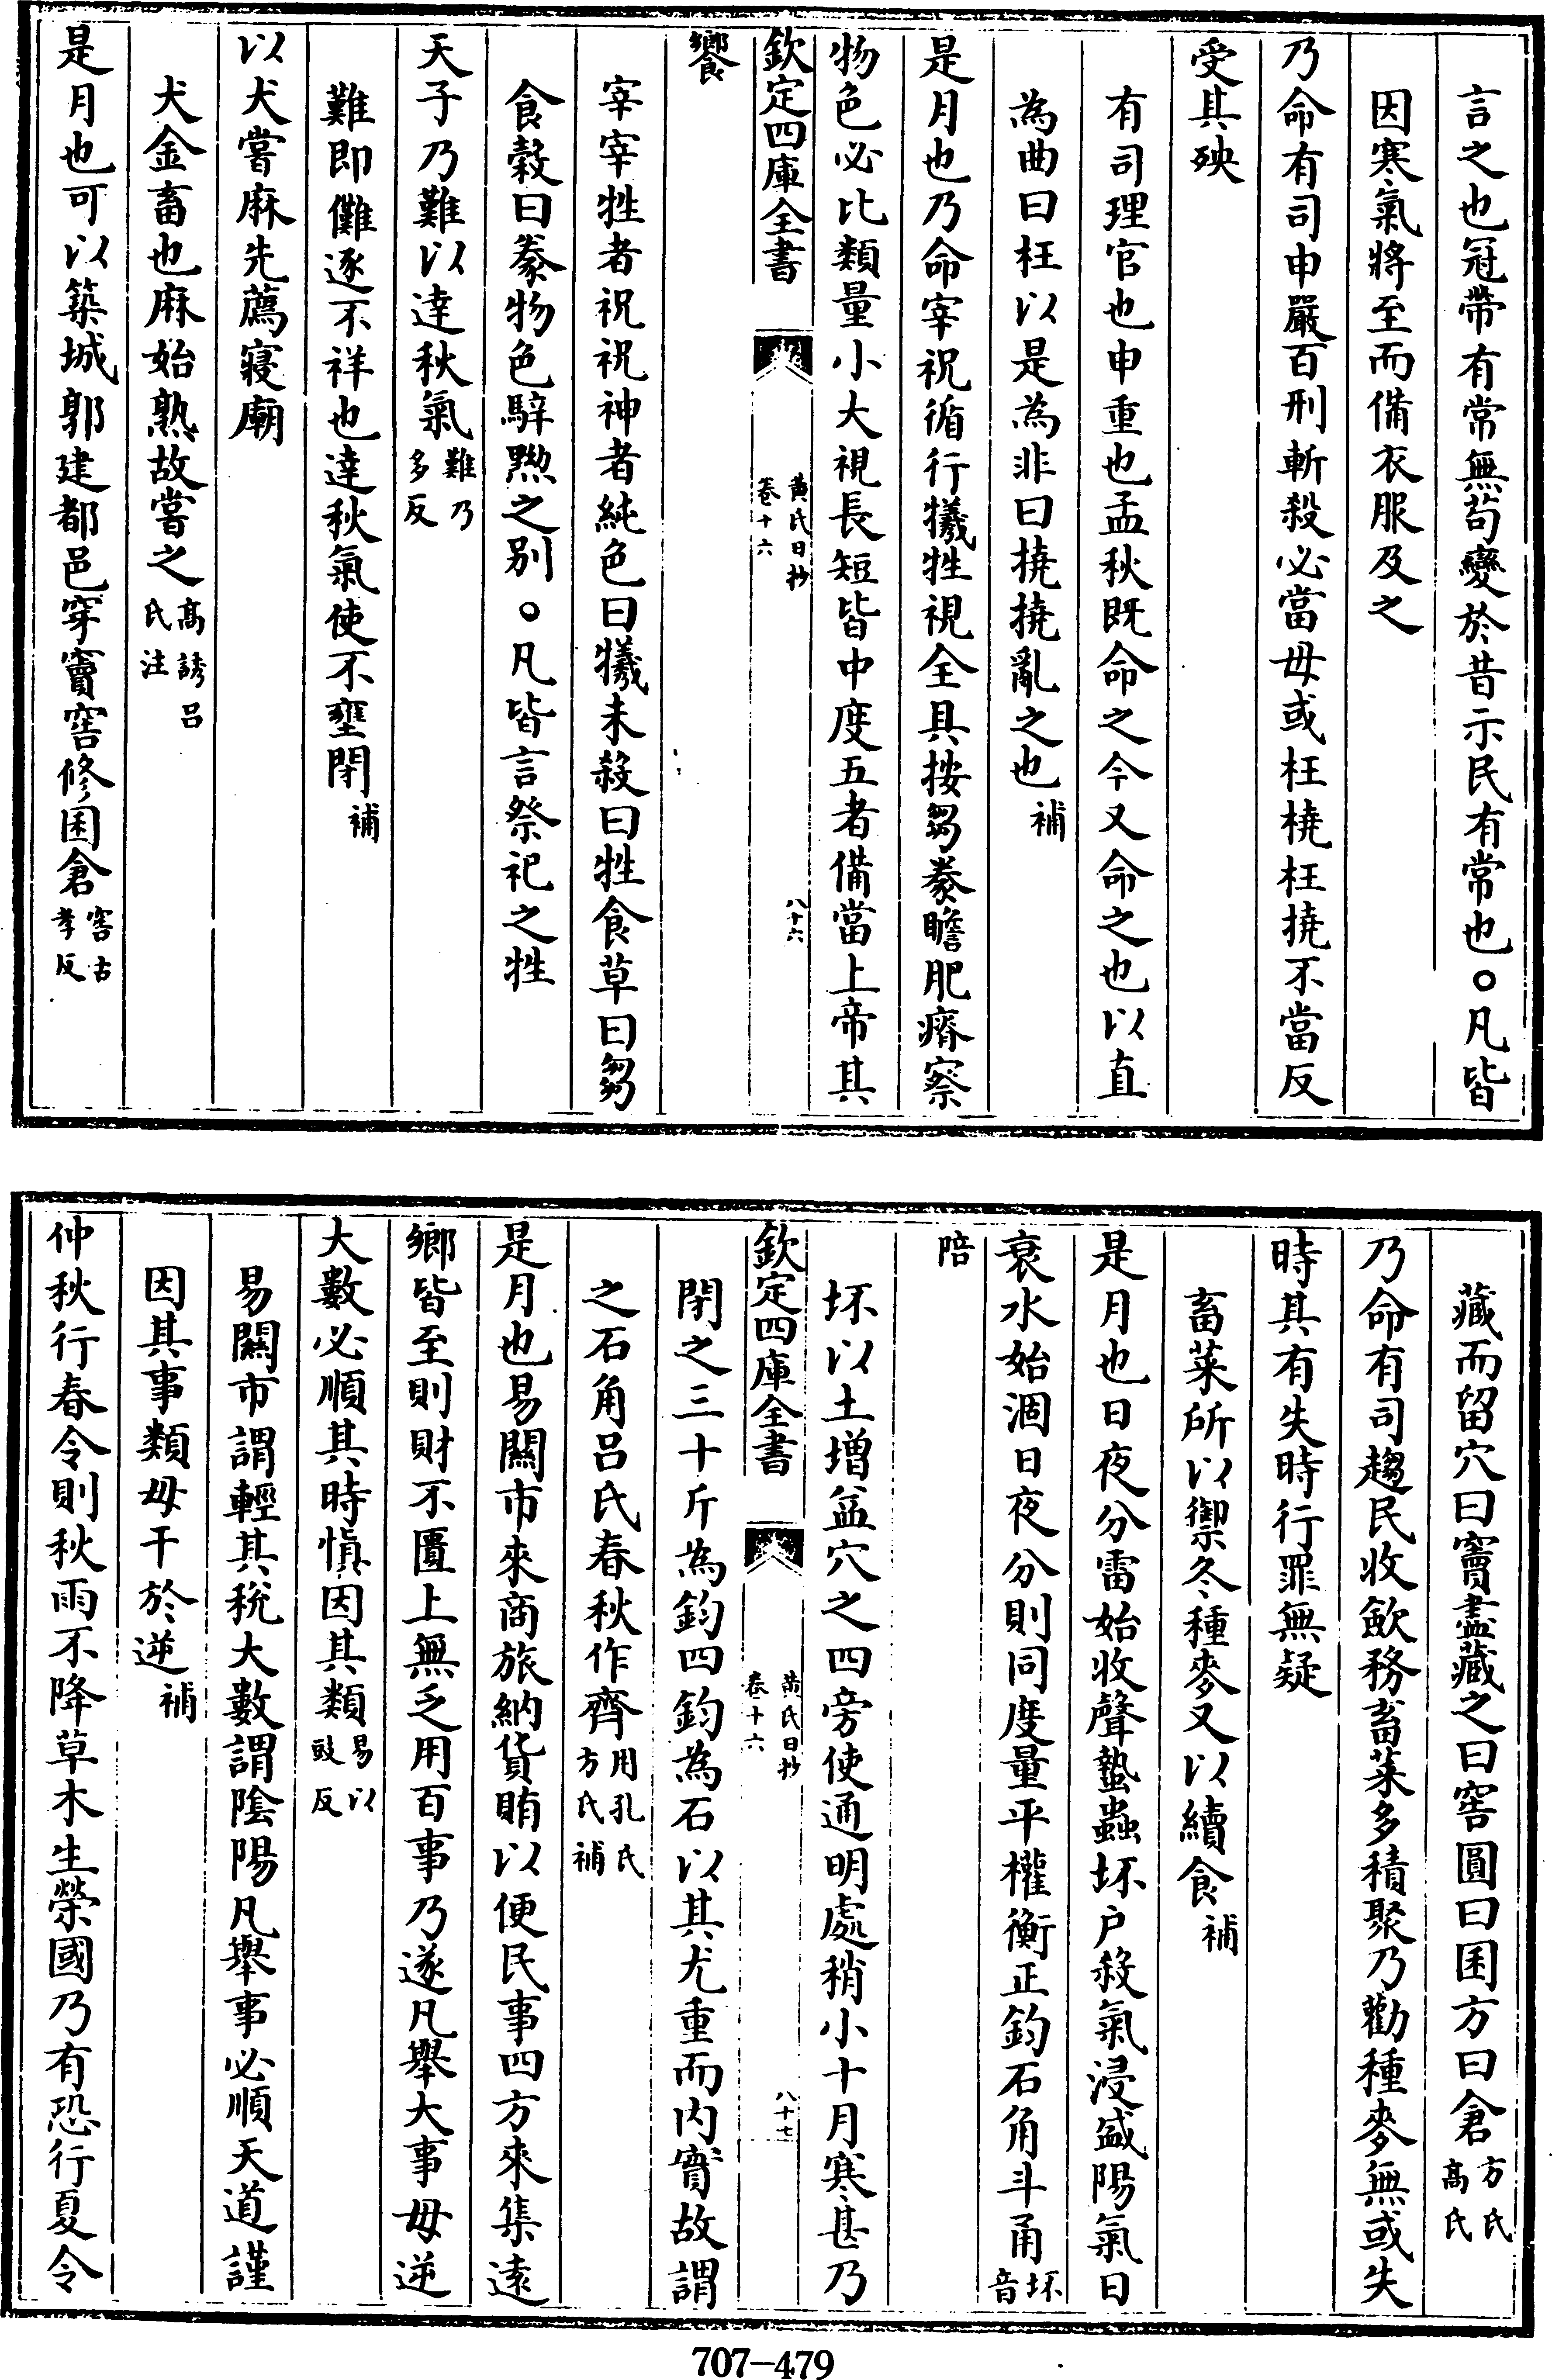 言之也冠帶有常無茍變於昔示民有常也○凡皆
因寒氣將至而備衣服及之
乃命有司申嚴百刑斬殺必當毋或枉橈枉撓不當反
受其殃
有司理官也申重也孟秋既命之今又命之也以直
為曲曰枉以是為非曰撓撓亂之也補
是月也乃命宰祝循行犧牲視全具按芻豢瞻肥瘠察
物色必比類量小大視長短皆中度五者備當上帝其
欽定四庫全書
黃氏日抄
卷十六
八十六
饗
宰宰牲者祝祝神者純色曰犧未殺曰牲食草曰芻
食穀曰豢物色騂黝之别○凡皆言祭祀之牲
天子乃難以達秋氣難乃多反
難即儺逐不祥也達秋氣使不壅閉補
以犬嘗麻先薦寢廟
犬金畜也麻始熟故嘗之高誘吕氏注
是月也可以築城郭建都邑穿竇窖修囷倉窖古孝反
藏而留穴曰竇盡藏之曰窖圓曰囷方曰倉方氏高氏
乃命有司趨民收歛務畜菜多積聚乃勸種麥無或失
時其有失時行罪無疑
畜菜所以禦冬種麥又以續食補
是月也日夜分雷始收聲蟄蟲坏户殺氣浸盛陽氣日
衰水始涸日夜分則同度量平權衡正鈞石角斗甬坏音
陪
坏以土增益穴之四旁使通明處稍小十月寒甚乃
欽定四庫全書
黃氏日抄
卷十六
八十七
閉之三十斤為鈞四鈞為石以其尤重而内實故謂
之石角吕氏春秋作齊用孔氏方氏補
是月也易關市來商旅納貨賄以便民事四方來集遠
鄉皆至則財不匱上無乏用百事乃遂凡舉大事毋逆
大數必順其時慎因其類易以豉反
易關市謂輕其稅大數謂陰陽凡舉事必順天道謹
因其事類毋干於逆補
仲秋行春令則秋雨不降草木生榮國乃有恐行夏令
707-479